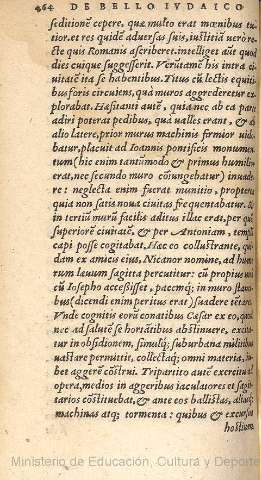 464 DE BELLO IVDAICO
seditionē cepere, qua multo erat mœnibus tu
tior. et res quidē aduersas suis, iustitiā uero re
cte quis Romanis ascriberet. intelliget aūt quod
dies cuique suggesserit. Verūtamē his intra ci
uitatē ita se habentibus. Titus cū lectis equiti
bus foris circuiens, quà muros aggrederetur ex
plorabat. Hæsitanti autē, quia nec ab ea parte
adiri poterat pedibus, quà ualles erant, & ab
alio latere, prior murus machinis firmior uide
batur, placuit ad Ioannis pontificis monumen
tum (hic enim tantūmodo & primus humilior
erat, nec secundo muro cōiungebatur) inuade
re: neglecta enim fuerat munitio, propterea
quia non satis noua ciuitas frequentabatur. sed
in tertiū murū facilis aditus illac erat, per quē
superiorē ciuitatē, & per Antoniam, templū
capi posse cogitabat. Hæc eo collustrante, qui
dam ex amicis eius, Nicanor nomine, ad hume
rum leuum sagitta percutitur: cū propius unà
cū Iosepho accessisset, pacemq; in muro stanti
bus (dicendi enim peritus erat) suadere tētaret.
Vnde cognitis eorū conatibus Cæsar ex eo, quòd
nec ad salutē se hortātibus abstinuere, excita
tur in obsidionem, simulq; suburbana militibus
uastare permittit, collectaq; omni materia, iu
bet aggerē cōstrui. Tripartito autē exercitu ad
opera, medios in aggeribus iaculatores et sagit
tarios cōstituebat, & ante eos ballistas, aliasq;
machinas atq; tormenta: quibus & excursus
hostium
Ministerio de Educación, Cultura y Deporte